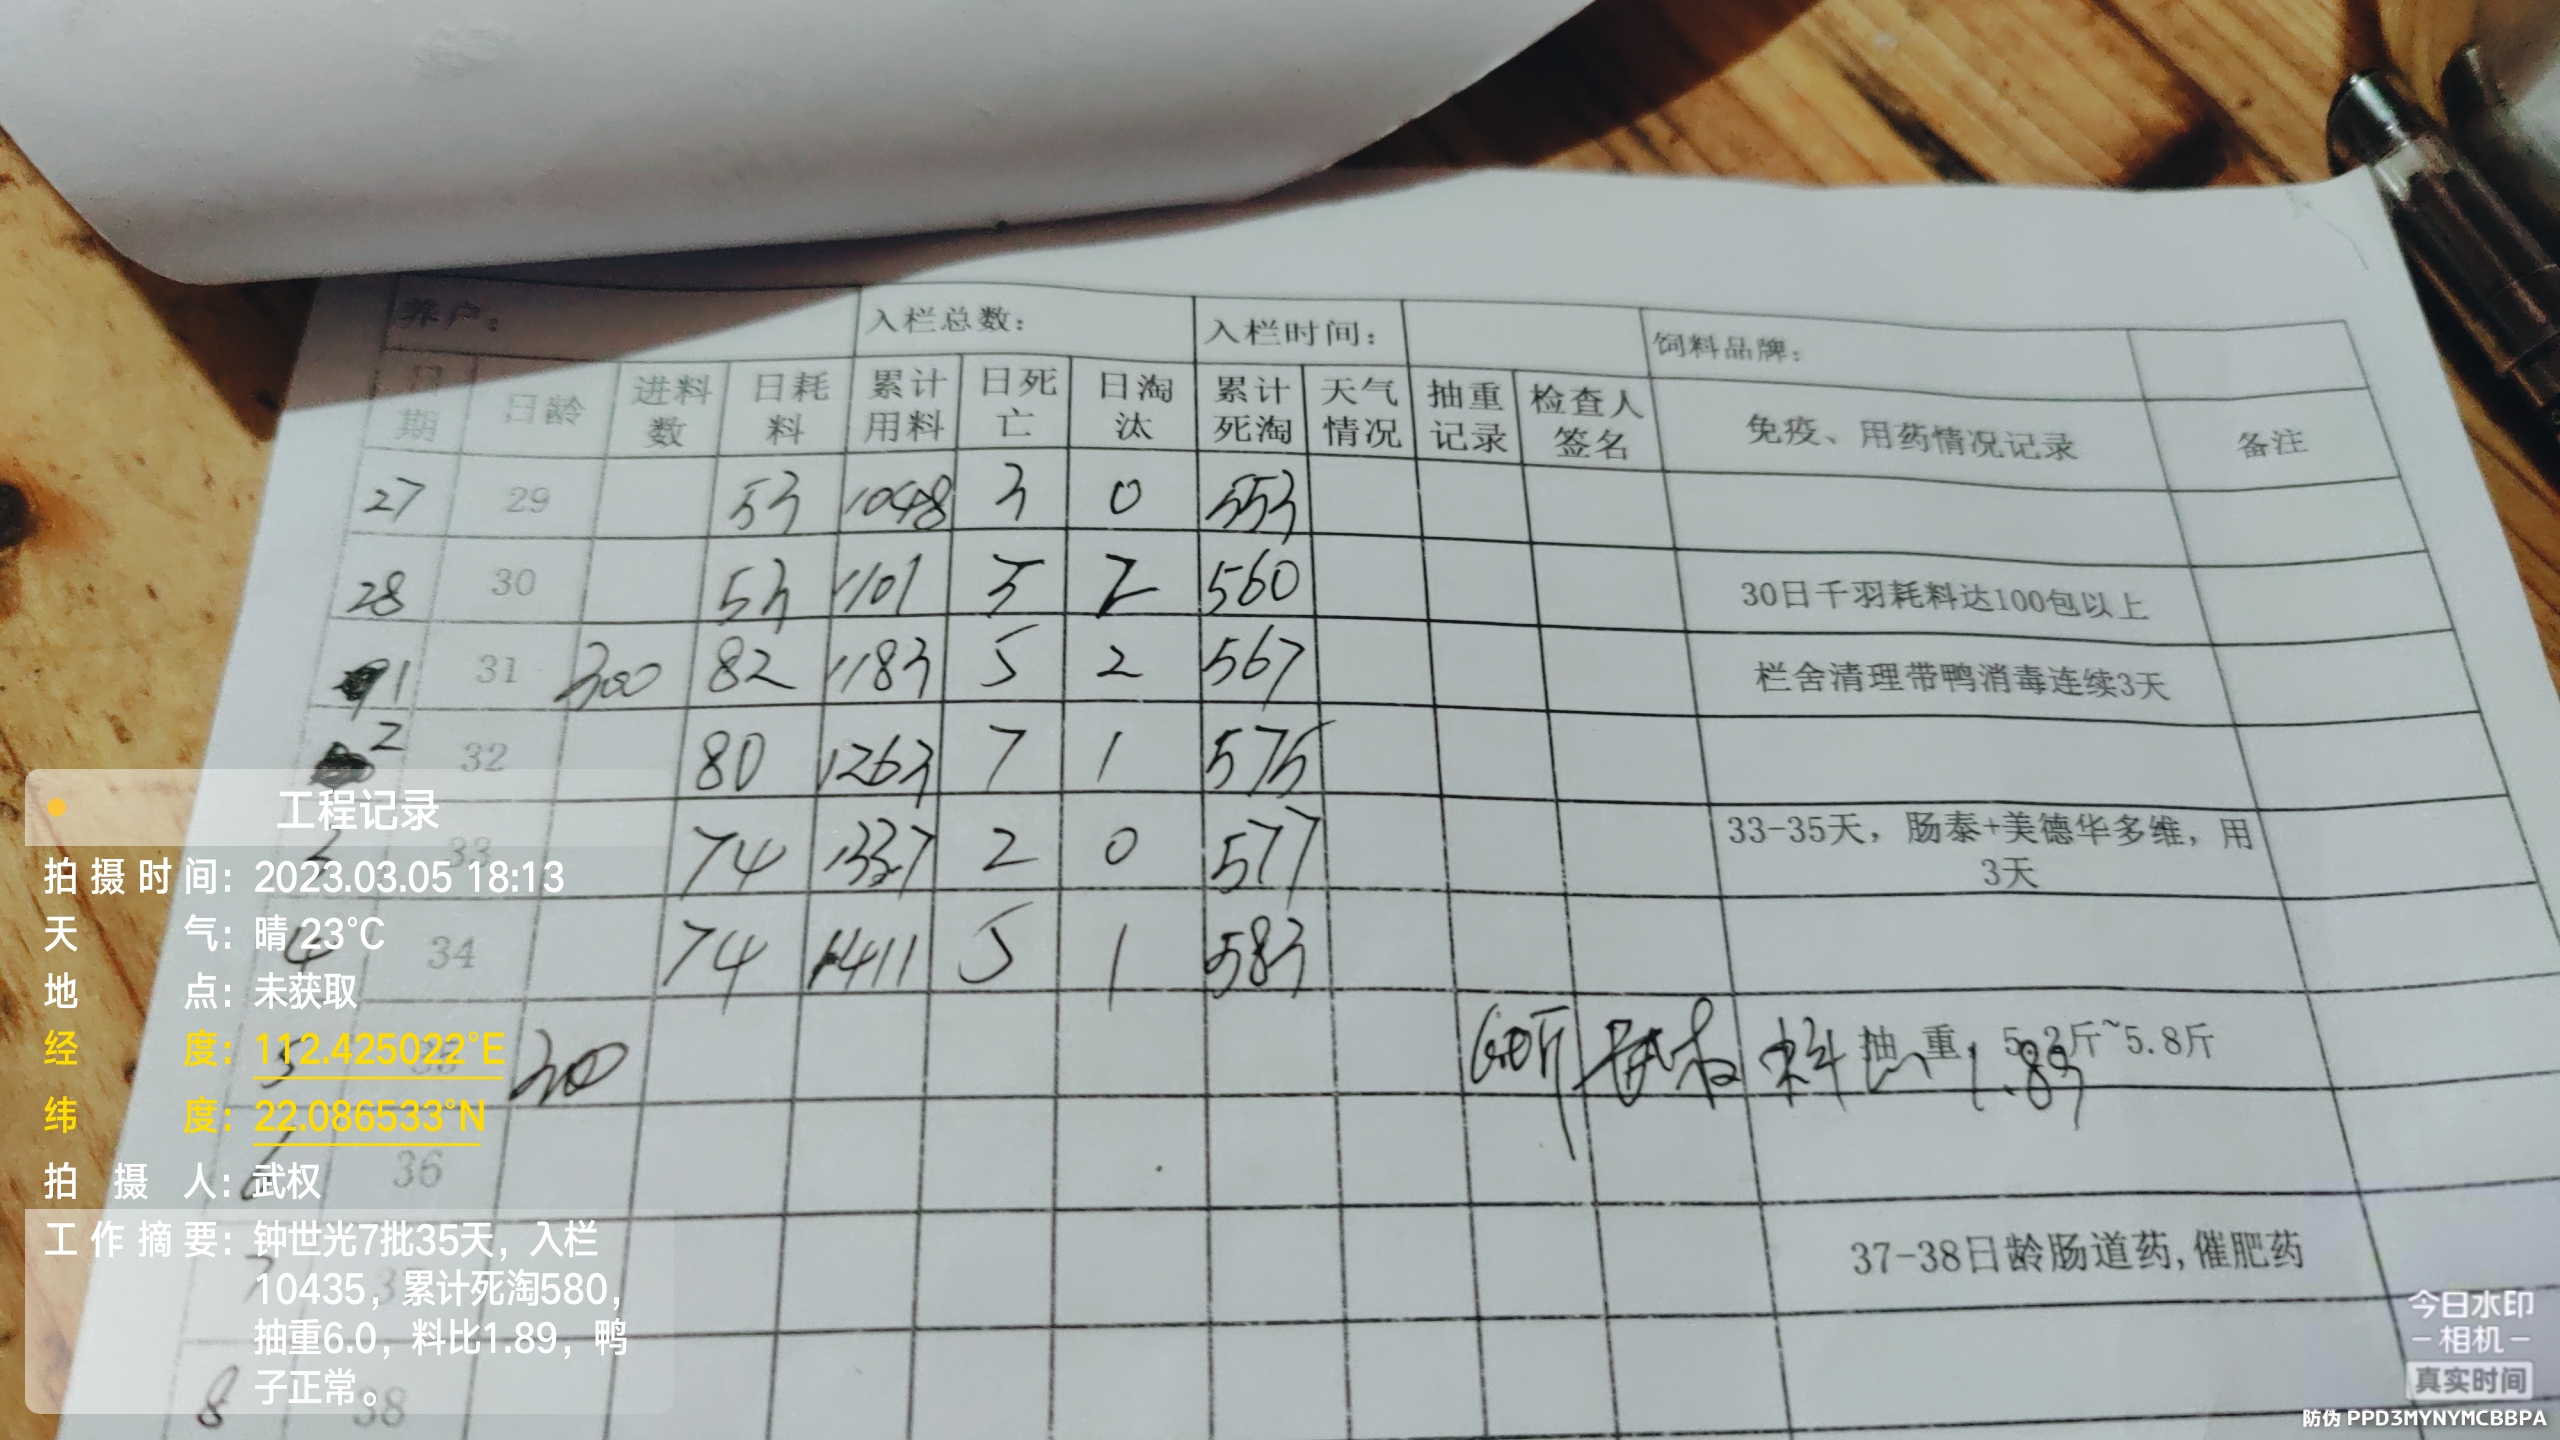 养户： 入栏总数： 入栏时间： 饲料品牌：
日期 日龄 进料数 日耗料 累计用料 日死亡 日淘汰 累计死淘 天气情况 抽重记录 检查人签名 免疫、用药情况记录 备注
27 29 53 1048 3 0 553
28 30 53 1101 5 2 560 30日千羽耗料达100包以上
1 31 300 82 1183 5 2 567 栏舍清理带鸭消毒连续3天
2 32 80 1263 7 1 575
3 33 74 1337 2 0 577 33-35天，肠泰+美德华多维，用
3天
4 34 74 1411 5 1 583
5 35 300 武权 料比 1.89 抽 重：5.2斤~5.8斤
6 36
7 37 37-38日龄肠道药,催肥药
8 38
工程记录
拍摄时间：2023.03.05 18:13
天气：晴 23℃
地点：未获取
经度：112.425022°E
纬度：22.086533°N
拍摄人：武权
工作摘要：钟世光7批35天，入栏
10435，累计死淘580，
抽重6.0，料比1.89，鸭
子正常。
今日水印
相机
真实时间
防伪 PPD3MYNYMCBBPA